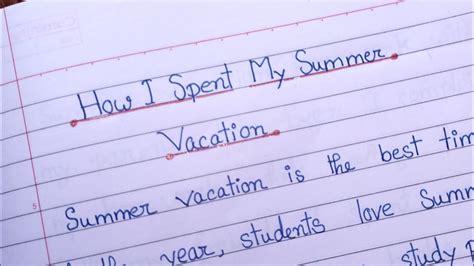 How I Spent My Summer
Vacation
Summer vacation is the best tim
year, students love Summ
study